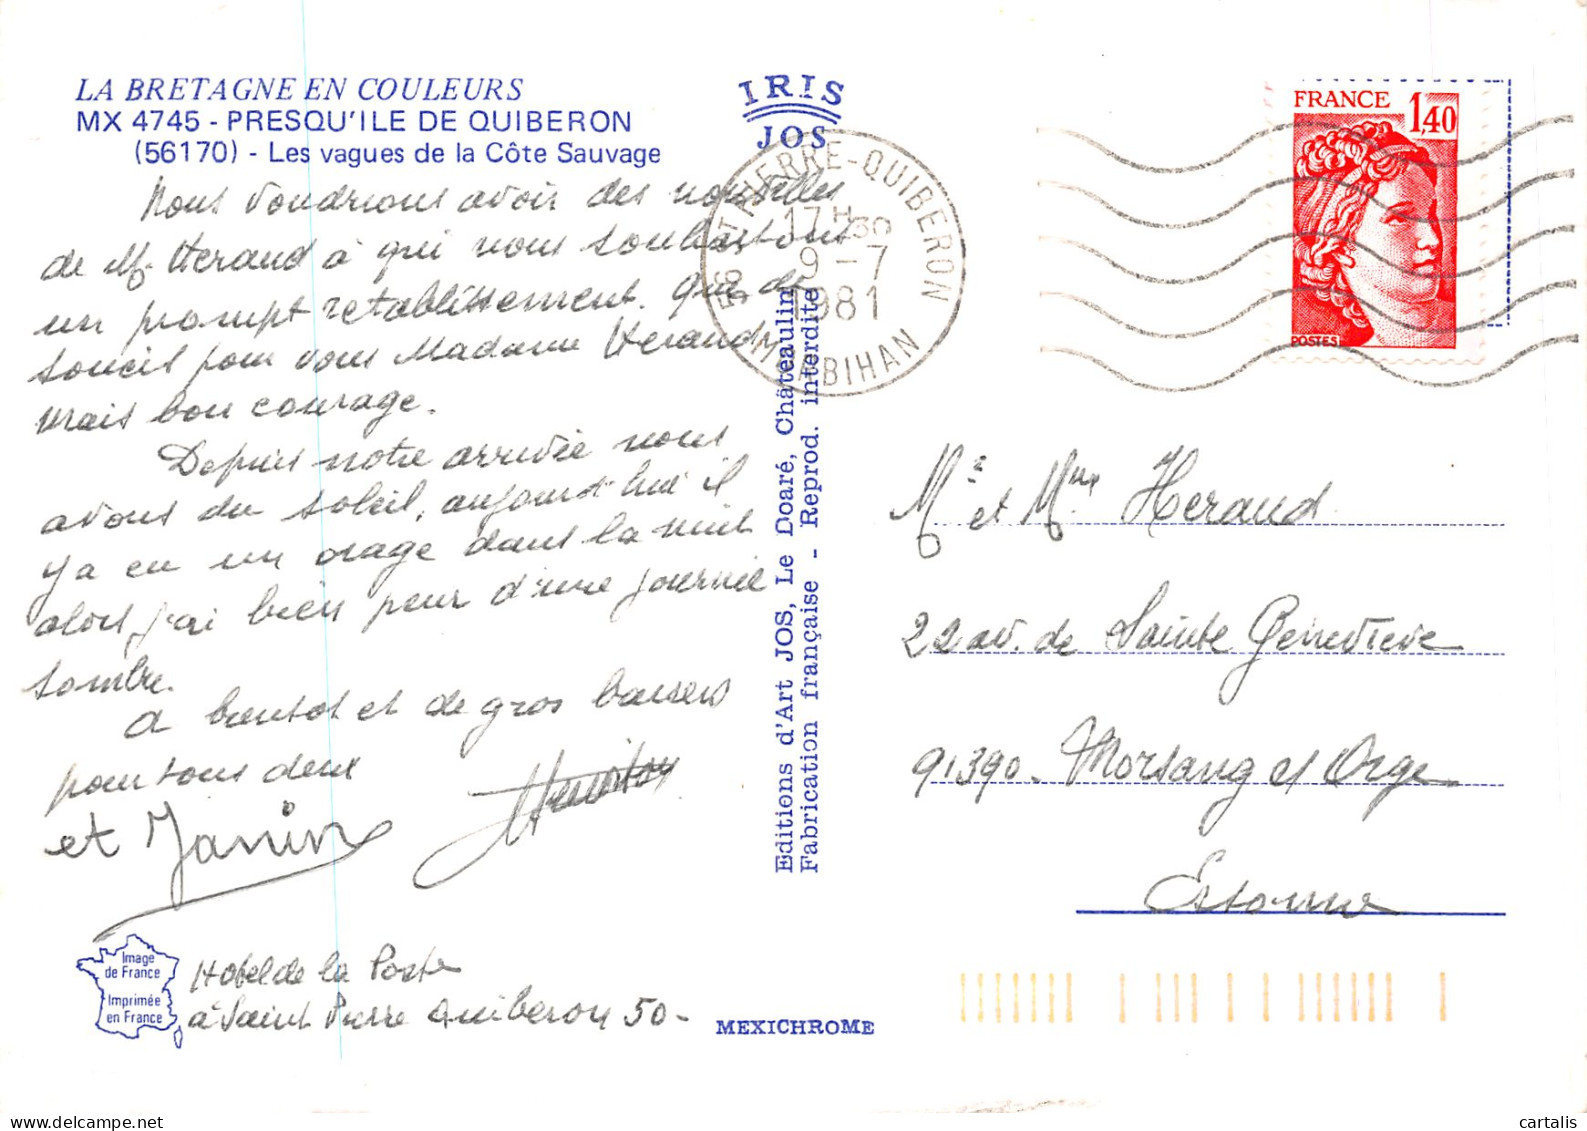 LA BRETAGNE EN COULEURS
MX 4745 - PRESQU'ILE DE QUIBERON
(56170) - Les vagues de la Côte Sauvage
IRIS
JOS
Nous voudrions avoir des nouvelles
de Mr Heraud à qui nous souhaitons
un prompt retablissement. Que de
souci pour vous Madame Heraud
vrais bon courage.
Depuis notre arrivée nous
avons du soleil, aujourd'hui il
y a eu un orage dans la nuit
alors j'ai bien peur d'une journée
sombre.
A bientot et de gros baisers
pour tous deux
et Janin
Hotel de la Poste
à Saint Pierre Quiberon 50-
Image
de France
Imprimée
en France
MEXICHROME
Editions d'Art JOS, Le Doaré, Châteaulin
Fabrication française - Reprod. interdite
ST PIERRE-QUIBERON
17H30
9-7
1981
MORBIHAN
FRANCE 1,40
POSTES
Mr et Mme Heraud
22 av. de Sainte Genevieve
91390- Morsang s/ Orge
Essonne
cartalis